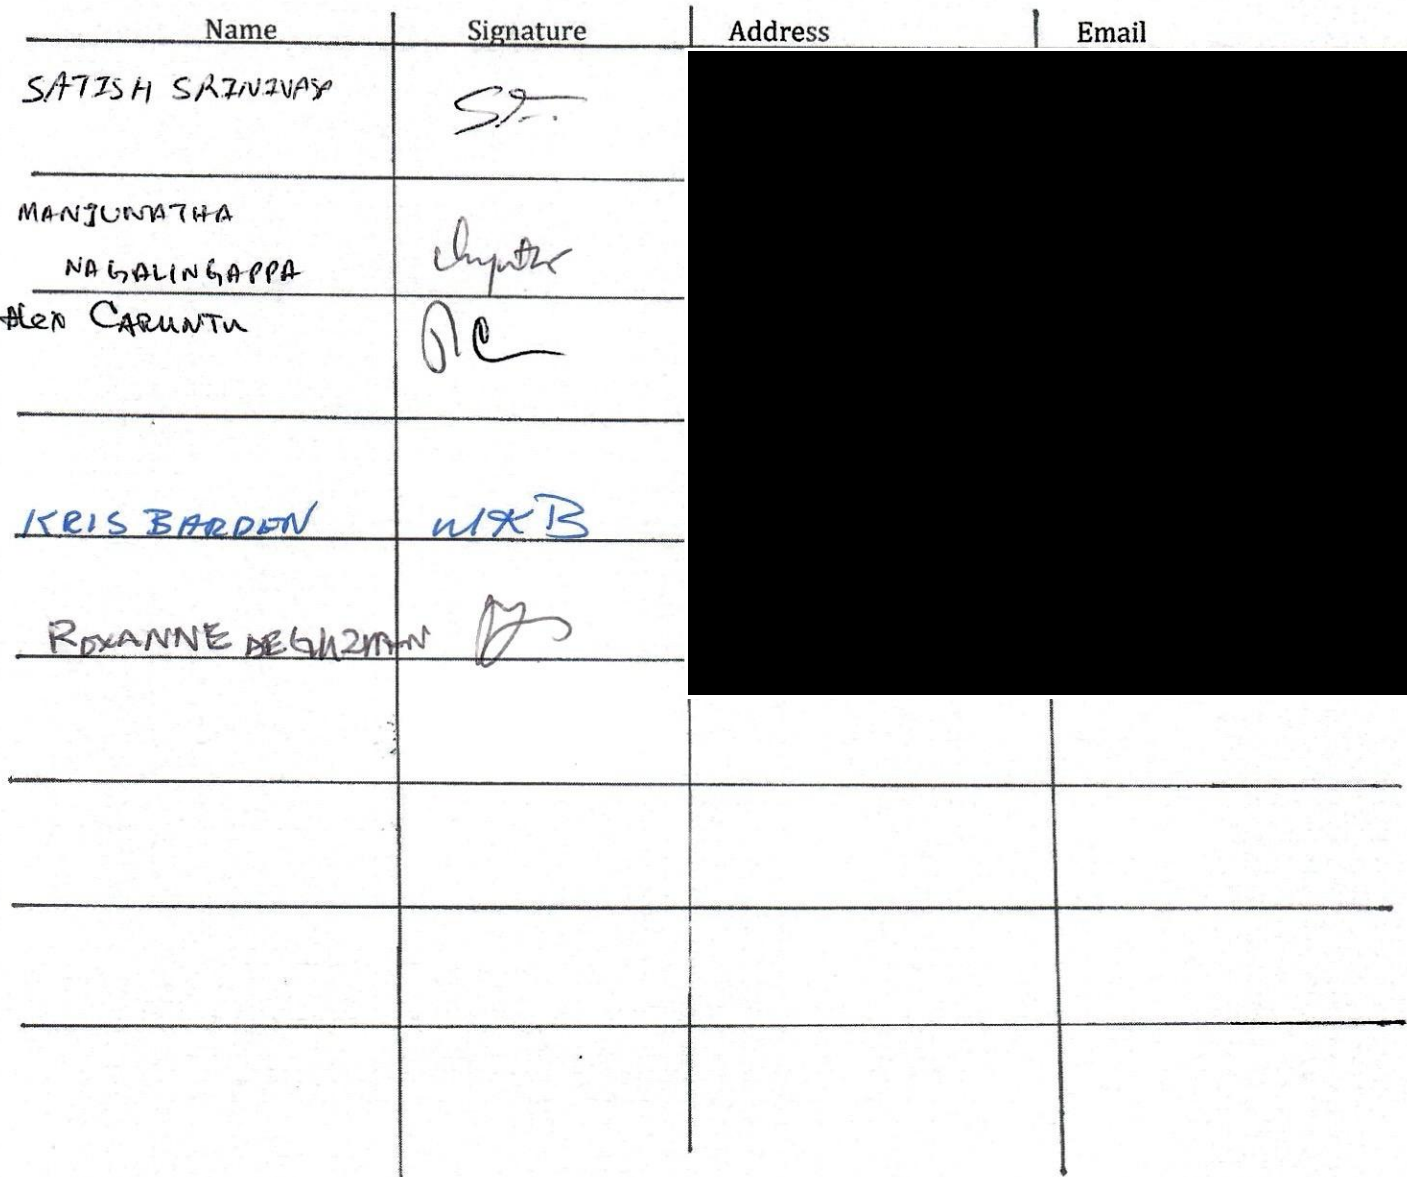 Name Signature Address Email
SATISH SRINIVAS
MANJUNATHA
NAGALINGAPPA
Alex CARUNTU
KRIS BARDEN WKB
ROXANNE DEGUZMAN